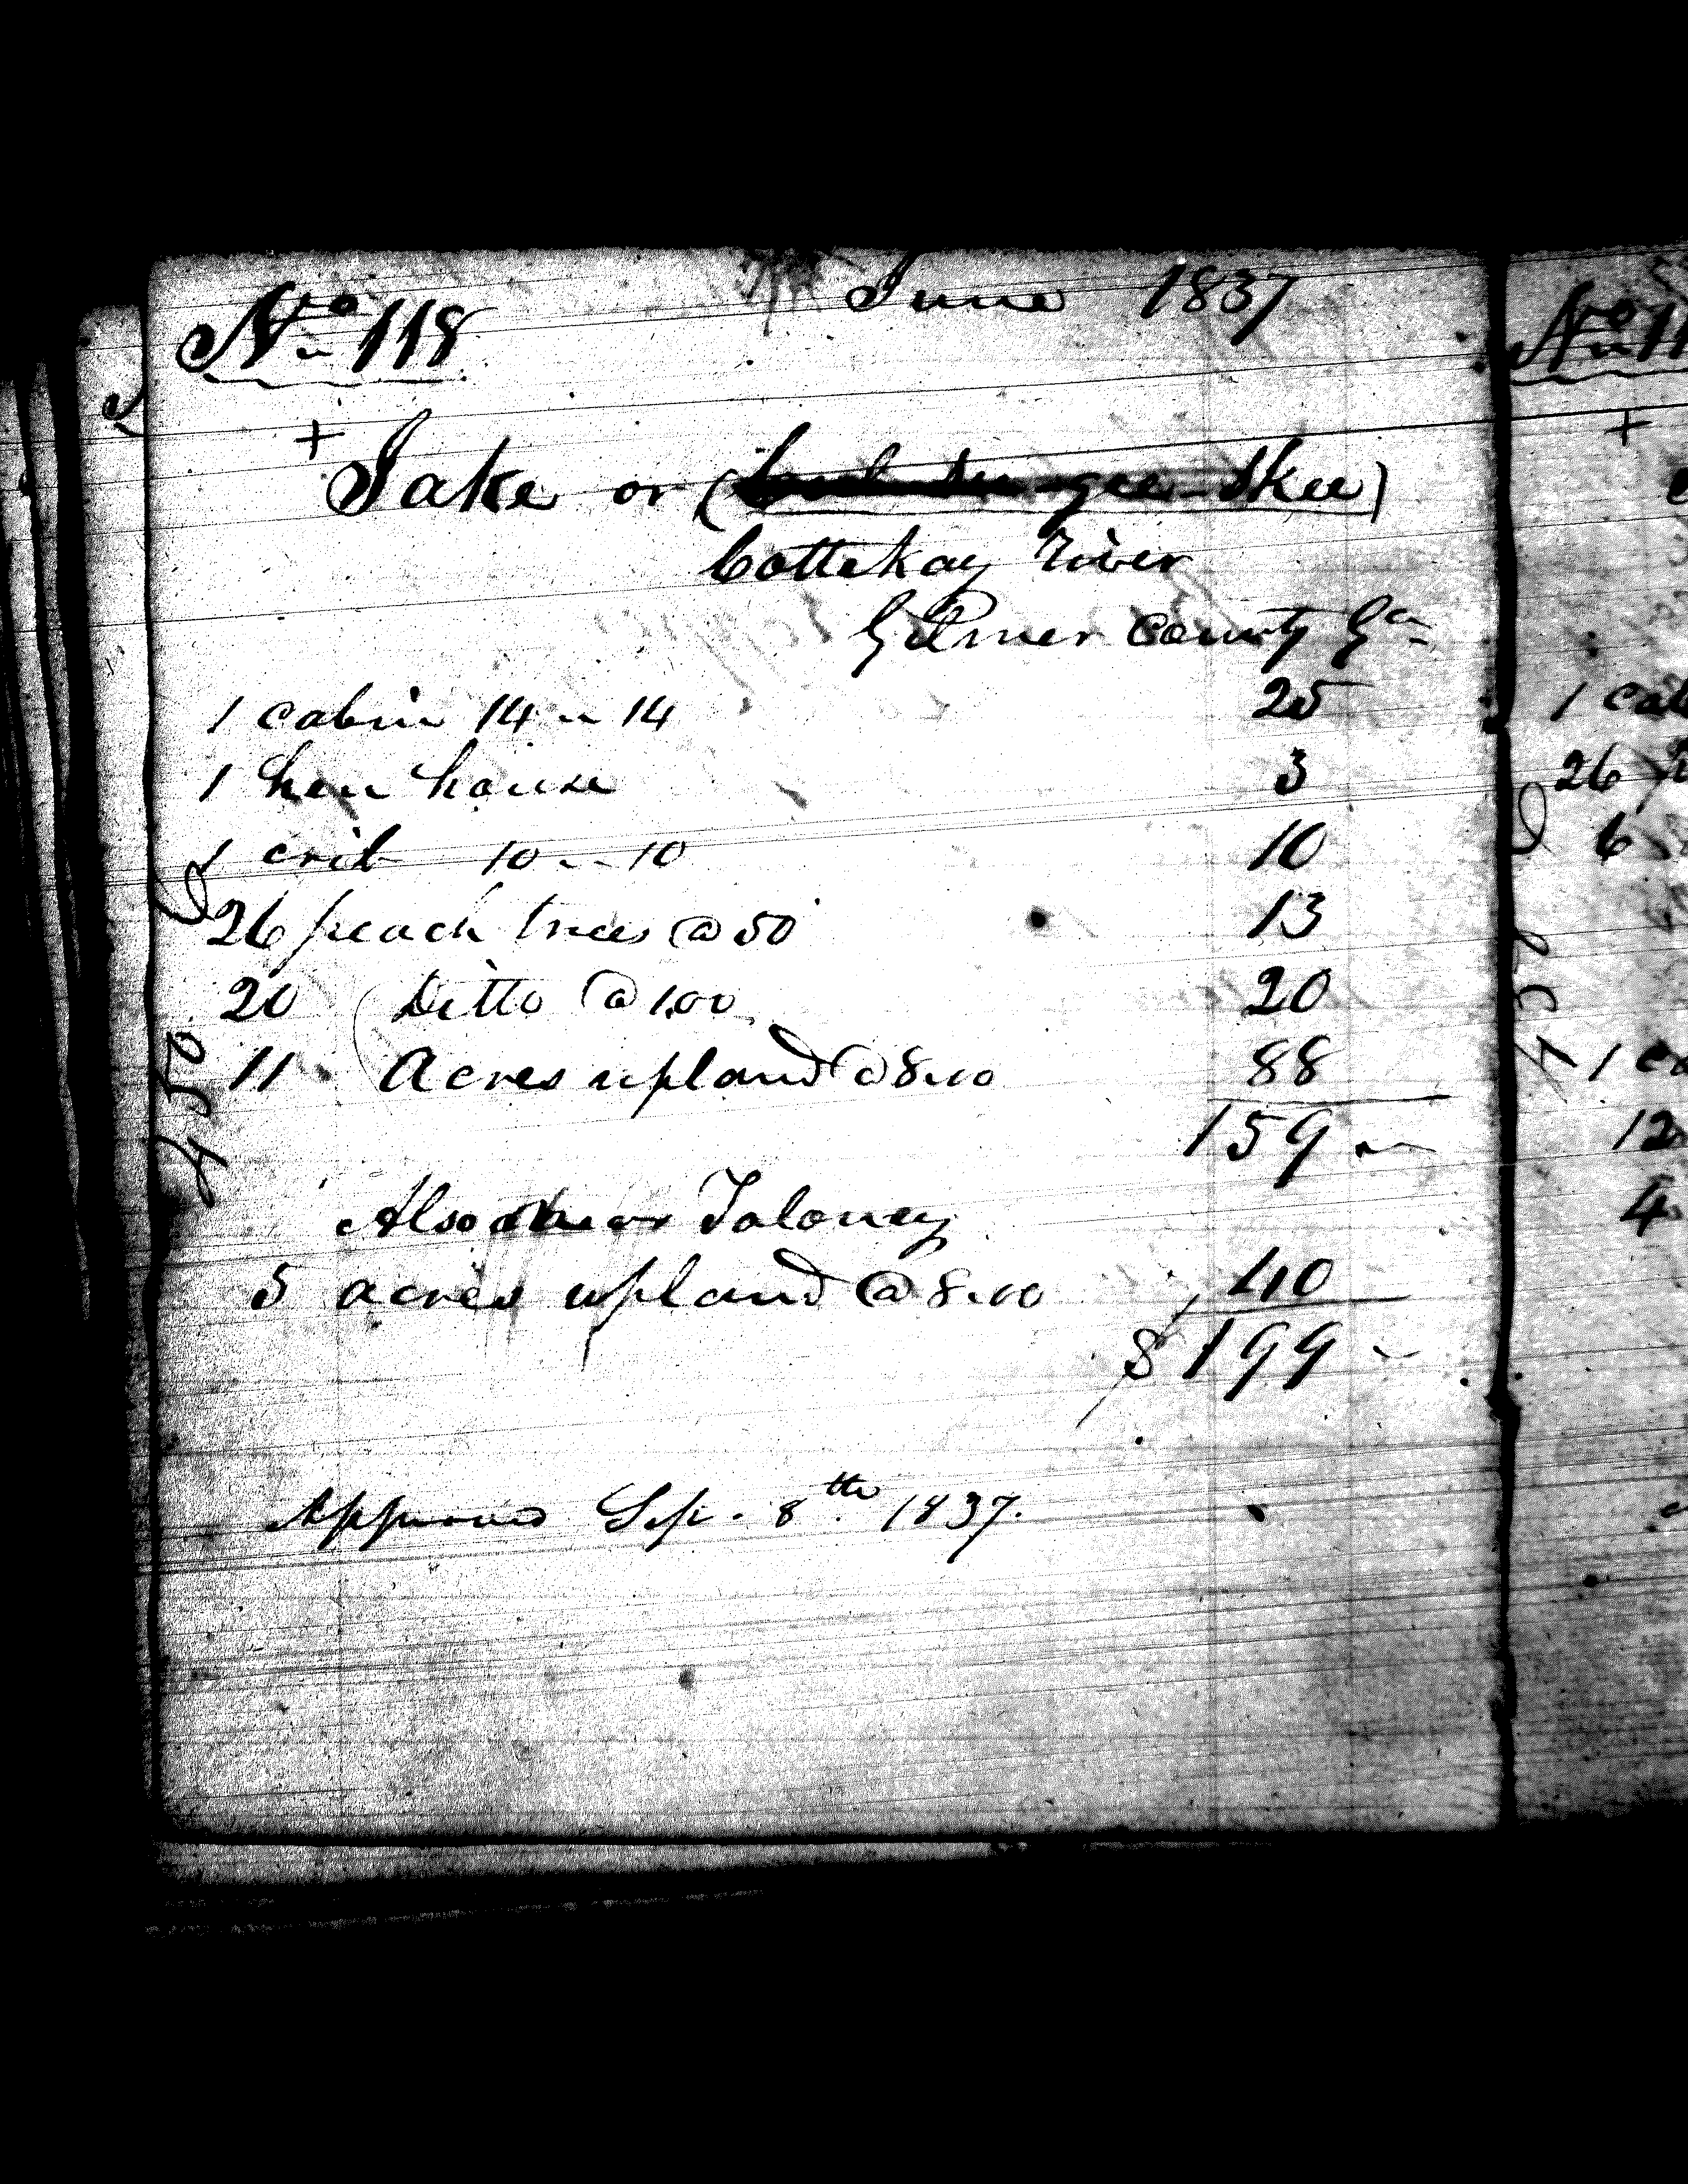 June 1837
No 118
+ Jake or ( gee-skee)
Cottekay River
Gilmer County Ga
1 cabin 14 " 14 25
1 hen house 3
1 crib 10 " 10 10
26 peach trees @ 50 13
20 Ditto @ 1.00 20
11 Acres upland @ 8.00 88
159 "
Also near Taloney
5 acres upland @ 8.00 40
$199 "
Approved Sep. 8th. 1837.
450
No 11
+
1 cab
26
6
438
1 ca
12
4